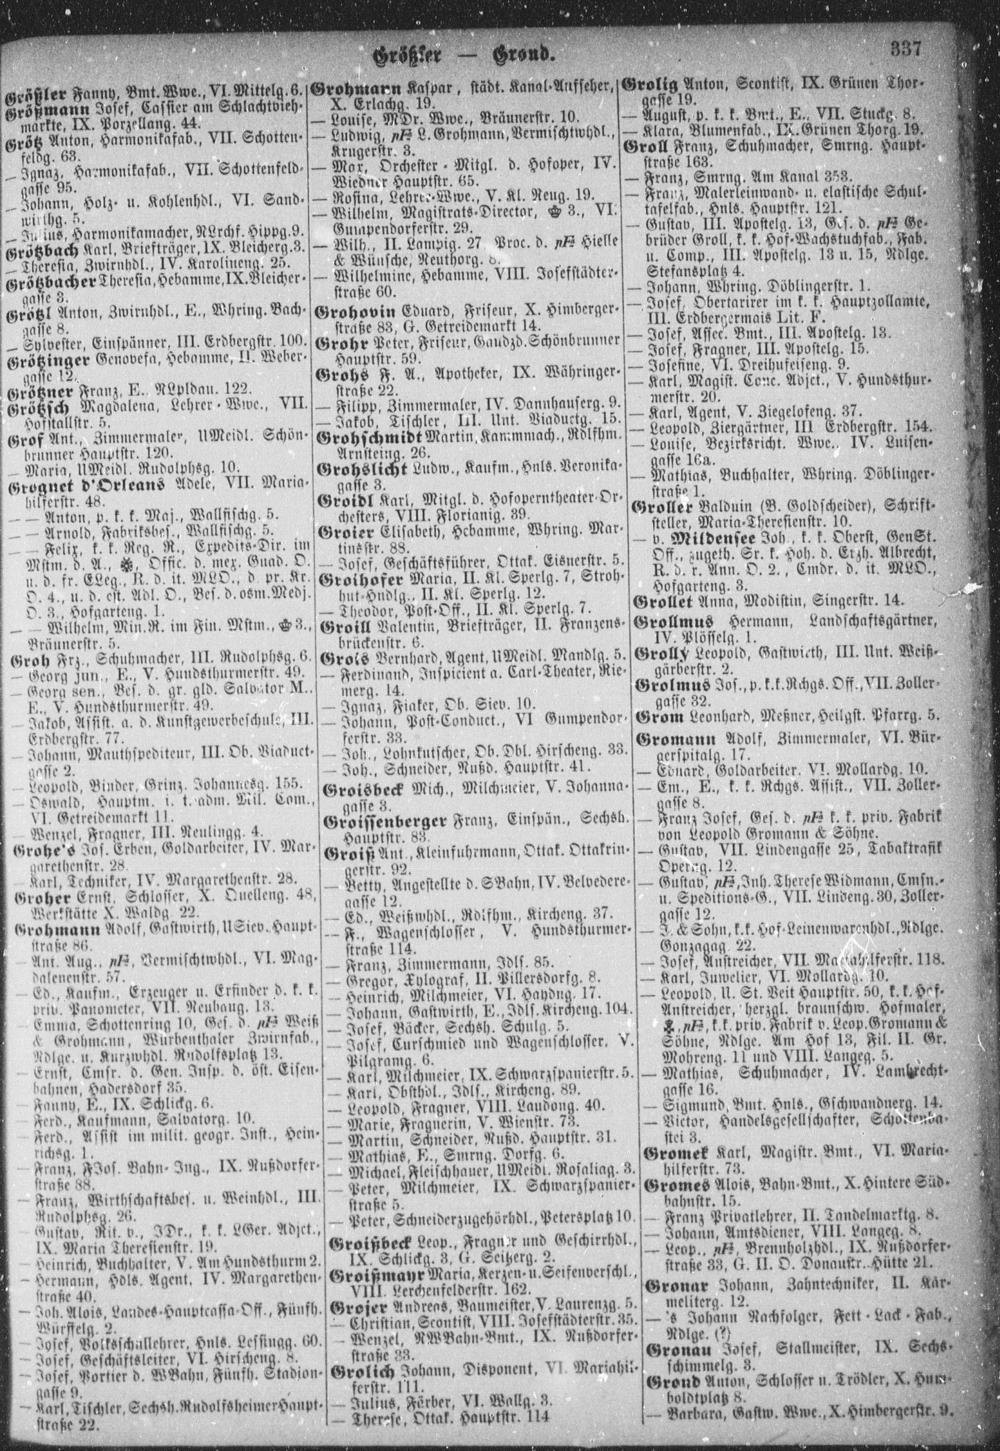 Größler — Grond.
337
Größler Fanny, Bmt. Wwe., VI. Mittelg. 6.
Größmann Josef, Cassier am Schlachtvieh-
markte, IX. Porzellang. 44.
Grötz Anton, Harmonikafab., VII. Schotten-
feldg. 63.
— Ignaz, Harmonikafab., VII. Schottenfeld-
gasse 95.
— Johann, Holz- u. Kohlenhdl., VI. Sand-
wirthg. 5.
— Julius, Harmonikamacher, NLrchf. Hippg. 9.
Grötzbach Karl, Briefträger, IX. Bleicherg. 3.
— Theresia, Zwirnhdl., IV. Karolineng. 25.
Grötzbacher Theresia, Hebamme, IX. Bleicher-
gasse 3.
Grötzl Anton, Zwirnhdl., E., Whring. Bach-
gasse 8.
— Sylvester, Einspänner, III. Erdbergstr. 100.
Grötzinger Genovefa, Hebamme, II. Weber-
gasse 12.
Grötzner Franz, E., NLpldau. 122.
Grötzsch Magdalena, Lehrer-Wwe., VII.
Hofstallstr. 5.
Grof Ant., Zimmermaler, UMeidl. Schön-
brunner Hauptstr. 120.
— Maria, UMeidl. Rudolphsg. 10.
Grognet d'Orleans Adele, VII. Maria-
hilferstr. 48.
— — Anton, p. k. k. Maj., Wallfischg. 5.
— — Arnold, Fabriksbes., Wallfischg. 5.
— — Felix, k. k. Reg. R., Expedits-Dir. im
Mstm. d. A., Offic. d. mex. Guad. O.
u. d. fr. ELeg., R. d. it. MLO., d. pr. Kr.
O. 4., u. d. est. Adl. O., Bes. d. osm. Medj.
O. 3., Hofgarteng. 1.
— — Wilhelm, Min. R. im Fin. Mstm., 3.,
Bräunerstr. 5.
Groh Frz., Schuhmacher, III. Rudolphsg. 6.
— Georg jun., E., V. Hundsthurmerstr. 49.
— Georg sen., Bes. d. gr. gld. Salvator M.,
E., V. Hundsthurmerstr. 49.
— Jakob, Assist. a. d. Kunstgewerbeschule, III.
Erdbergstr. 77.
— Johann, Mauthspediteur, III. Ob. Viaduct-
gasse 2.
— Leopold, Binder, Grinz. Johannesg. 155.
— Oswald, Hauptm. i. t. adm. Mil. Com.,
VI. Getreidemarkt 11.
— Wenzel, Fragner, III. Neulingg. 4.
Grohe's Jos. Erben, Goldarbeiter, IV. Mar-
garethenstr. 28
— Karl, Techniker, IV. Margarethenstr. 28.
Groher Ernst, Schlosser, X. Quelleng. 48,
Werkstätte X. Waldg. 22.
Grohmann Adolf, Gastwirth, USiev. Haupt-
straße 86.
— Ant. Aug., Vermischtwhdl., VI. Mag-
dalenenstr. 57.
— Ed., Kaufm., Erzeuger u. Erfinder d. k. k.
priv. Panometer, VII. Neubaug. 13.
— Emma, Schottenring 10, Ges. d. Weiß
& Grohmann, Würbenthaler Zwirnfab.,
Ndlge. u. Kurzwhdl. Rudolfsplatz 13.
— Ernst, Cmsr. d. Gen. Insp. d. öst. Eisen-
bahnen, Hadersdorf 35.
— Fanny, E., IX. Schlickg. 6.
— Ferd., Kaufmann, Salvatorg. 10.
— Ferd., Assist im milit. geogr. Inst., Hein-
richsg. 1.
— Franz, FJos. Bahn-Ing., IX. Nußdorfer-
straße 88.
— Franz, Wirthschaftsbes. u. Weinhdl., III.
Rudolphsg. 26.
— Gustav, Rit. v., JDr., k. k. LGer. Adjct.,
IX. Maria Theresienstr. 19.
— Heinrich, Buchhalter, V. Am Hundsthurm 2.
— Hermann, Hdls. Agent, IV. Margarethen-
straße 40.
— Joh. Alois, Landes-Hauptcassa-Off., Fünfh.
Würffelg. 2.
— Josef, Volksschullehrer, Hnls. Lessingg. 60.
— Josef, Geschäftsleiter, VI. Hirscheng. 8.
— Josef, Portier d. WBahn, Fünfh. Stadion-
gasse 9.
— Karl, Tischler, Sechsh. Rudolfsheimer Haupt-
straße 22.
Grohmann Kaspar, städt. Kanal-Aufseher,
X. Erlachg. 19.
— Louise, MDr. Wwe., Bräunerstr. 10.
— Ludwig, L. Grohmann, Vermischtwhdl.,
Krugerstr. 3.
— Max, Orchester-Mitgl. d. Hofoper, IV.
Wiedner Hauptstr. 65.
— Rosina, Lehrer-Wwe., V. Kl. Neug. 19.
— Wilhelm, Magistrats-Director, 3., VI.
Gumpendorferstr. 29.
— Wilh., II. Lampig. 27 Proc. d. Hielle
& Wünsche, Neuthorg. 8.
— Wilhelmine, Hebamme, VIII. Josefstädter-
straße 60.
Grohovin Eduard, Friseur, X. Himberger-
straße 83, G. Getreidemarkt 14.
Grohr Peter, Friseur, Gaudzd. Schönbrunner
Hauptstr. 59.
Grohs F. A., Apotheker, IX. Währinger-
straße 22.
— Filipp, Zimmermaler, IV. Dannhauserg. 9.
— Jakob, Tischler, III. Unt. Viaductg. 15.
Grohschmidt Martin, Kammmach., Rdlfhm.
Arnsteing. 26.
Grohslicht Ludw., Kaufm., Hnls. Veronika-
gasse 3.
Groidl Karl, Mitgl. d. Hofoperntheater-Or-
chesters, VIII. Florianig. 39.
Groier Elisabeth, Hebamme, Whring. Mar-
tinsstr. 88.
— Josef, Geschäftsführer, Ottak. Eisnerstr. 5.
Groihofer Maria, II. Kl. Sperlg. 7, Stroh-
hut-Hndlg., II. Kl. Sperlg. 12.
— Theodor, Post-Off., II. Kl. Sperlg. 7.
Groill Valentin, Briefträger, II. Franzens-
brückenstr. 6.
Grois Bernhard, Agent, UMeidl. Mandlg. 5.
— Ferdinand, Inspicient a. Carl-Theater, Rie-
merg. 14.
— Ignaz, Fiaker, Ob. Siev. 10.
— Johann, Post-Conduct., VI Gumpendor-
ferstr. 33.
— Joh., Lohnkutscher, Ob. Dbl. Hirscheng. 33.
— Joh., Schneider, Nußd. Hauptstr. 41.
Groisbeck Mich., Milchmeier, V. Johanna-
gasse 3.
Groissenberger Franz, Einspän., Sechsh.
Hauptstr. 83.
Groiß Ant., Kleinfuhrmann, Ottak. Ottakrin-
gerstr. 92.
— Betty, Angestellte d. SBahn, IV. Belvedere-
gasse 12.
— Ed., Weißwhdl., Rdlfhm., Kircheng. 37.
— F., Wagenschlosser, V. Hundsthurmer-
straße 114.
— Franz, Zimmermann, Jdls. 85.
— Gregor, Xylograf, II. Pillersdorfg. 8.
— Heinrich, Milchmeier, VI. Haydng. 17.
— Johann, Gastwirth, E., Jdls. Kircheng. 104.
— Josef, Bäcker, Sechsh. Schulg. 5.
— Josef, Curschmied und Wagenschlosser, V.
Pilgramg. 6.
— Karl, Milchmeier, IX. Schwarzspanierstr. 5.
— Karl, Obsthdl., Jdls., Kircheng. 89.
— Leopold, Fragner, VIII. Laudong. 40.
— Marie, Fragnerin, V. Wienstr. 73.
— Martin, Schneider, Nußd. Hauptstr. 31.
— Mathias, E., Smrng. Dorfg. 6.
— Michael, Fleischhauer, UMeidl. Rosaliag. 3.
— Peter, Milchmeier, IX. Schwarzspanier-
straße 5.
— Peter, Schneiderzugehörhdl., Petersplatz 10.
Groißbeck Leop., Fragner und Geschirrhdl.,
IX. Schlickg. 3, G. Seitzerg. 2.
Groißmayr Maria, Kerzen- u. Seifenverschl.,
VIII. Lerchenfelderstr. 162.
Grojer Andreas, Baumeister, V. Laurenzg. 5.
— Christian, Scontist, VIII. Josefstädterstr. 35.
— Wenzel, NWBahn-Bmt., IX. Nußdorfer-
straße 33.
Grolich Johann, Disponent, VI. Mariahil-
ferstr. 111.
— Julius, Färber, VI. Wallg. 3.
— Therese, Ottak. Hauptstr. 114
Grolig Anton, Scontist, IX. Grünen Thor-
gasse 19.
— August, p. k. k. Bmt., E., VII. Stuckg. 8.
— Klara, Blumenfab., IX. Grünen Thorg. 19.
Groll Franz, Schuhmacher, Smrng. Haupt-
straße 163.
— Franz, Smrng. Am Kanal 353.
— Franz, Malerleinwand- u. elastische Schul-
tafelfab., Hnls. Hauptstr. 121.
— Gustav, III. Apostelg. 13, Ges. d. Ge-
brüder Groll, k. k. Hof-Wachstuchfab., Fab.
u. Comp., III. Apostelg. 13 u. 15, Ndlge.
Stefansplatz 4.
— Johann, Whring. Döblingerstr. 1.
— Josef, Obertarirer im k. k. Hauptzollamte,
III. Erdbergermais Lit. F.
— Josef, Assec. Bmt., III. Apostelg. 13.
— Josef, Fragner, III. Apostelg. 15.
— Josefine, VI. Dreihufeiseng. 9.
— Karl, Magist. Conc. Adjct., V. Hundsthur-
merstr. 20.
— Karl, Agent, V. Ziegelofeng. 37.
— Leopold, Ziergärtner, III Erdbergstr. 154.
— Louise, Bezirksricht. Wwe., IV. Luisen-
gasse 16a.
— Mathias, Buchhalter, Whring. Döblinger-
straße 1.
Groller Balduin (B. Goldscheider), Schrift-
steller, Maria-Theresienstr. 10.
— v. Mildensee Joh., k. k. Oberst, GenSt.
Off., zugeth. Sr. k. Hoh. d. Erzh. Albrecht,
R. d. r. Ann. O. 2., Cmdr. d. it. MLO.,
Hofgarteng. 3.
Grollet Anna, Modistin, Singerstr. 14.
Grollmus Hermann, Landschaftsgärtner,
IV. Plösselg. 1.
Grolly Leopold, Gastwirth, III. Unt. Weiß-
gärberstr. 2.
Grolmus Jos., p. k. k. Rchgs. Off., VII. Zoller-
gasse 32.
Grom Leonhard, Meßner, Heilgst. Pfarrg. 5.
Gromann Adolf, Zimmermaler, VI. Bür-
gerspitalg. 17.
— Eduard, Goldarbeiter. VI. Mollardg. 10.
— Em., E., k. k. Rchgs. Assist., VII. Zoller-
gasse 8.
— Franz Josef, Ges. d. k. k. priv. Fabrik
von Leopold Gromann & Söhne.
— Gustav, VII. Lindengasse 25, Tabaktrafik
Operng. 12.
— Gustav, Inh. Therese Widmann, Cmsn.-
u. Speditions-G., VII. Lindeng. 30, Zoller-
gasse 12.
— J. & Sohn, k.k. Hof-Leinenwarenhdl., Ndlge.
Gonzagag. 22.
— Josef, Anstreicher, VII. Mariahilferstr. 118.
— Karl, Juwelier, VI. Mollardg. 10.
— Leopold, U. St. Veit Hauptstr. 50, k. k. Hof-
Anstreicher, herzgl. braunschw. Hofmaler,
k.k. priv. Fabrik v. Leop. Gromann &
Söhne, Ndlge. Am Hof 13, Fil. II. Gr.
Mohreng. 11 und VIII. Langeg. 5.
— Mathias, Schuhmacher, IV. Lambrecht-
gasse 16.
— Sigmund, Bmt. Hnls., Gschwandnerg. 14.
— Victor, Handelsgesellschafter, Schottenba-
stei 3.
Gromek Karl, Magistr. Bmt., VI. Maria-
hilferstr. 73.
Gromes Alois, Bahn-Bmt., X. Hintere Süd-
bahnstr. 15.
— Franz Privatlehrer, II. Tandelmarktg. 8.
— Johann, Amtsdiener, VIII. Langeg. 8.
— Leop., Brennholzhdl., IX. Nußdorfer-
straße 33, G. II. O. Donaustr. Hütte 21.
Gronar Johann, Zahntechniker, II. Kar-
meliterg. 12.
— 's Johann Nachfolger, Fett-Lack-Fab.,
Ndlge. (?)
Gronau Josef, Stallmeister, IX. Sechs-
schimmelg. 3.
Grond Anton, Schlosser u. Trödler, X. Hum-
boldtplatz 8.
— Barbara, Gastw. Wwe., X. Himbergerstr. 9.